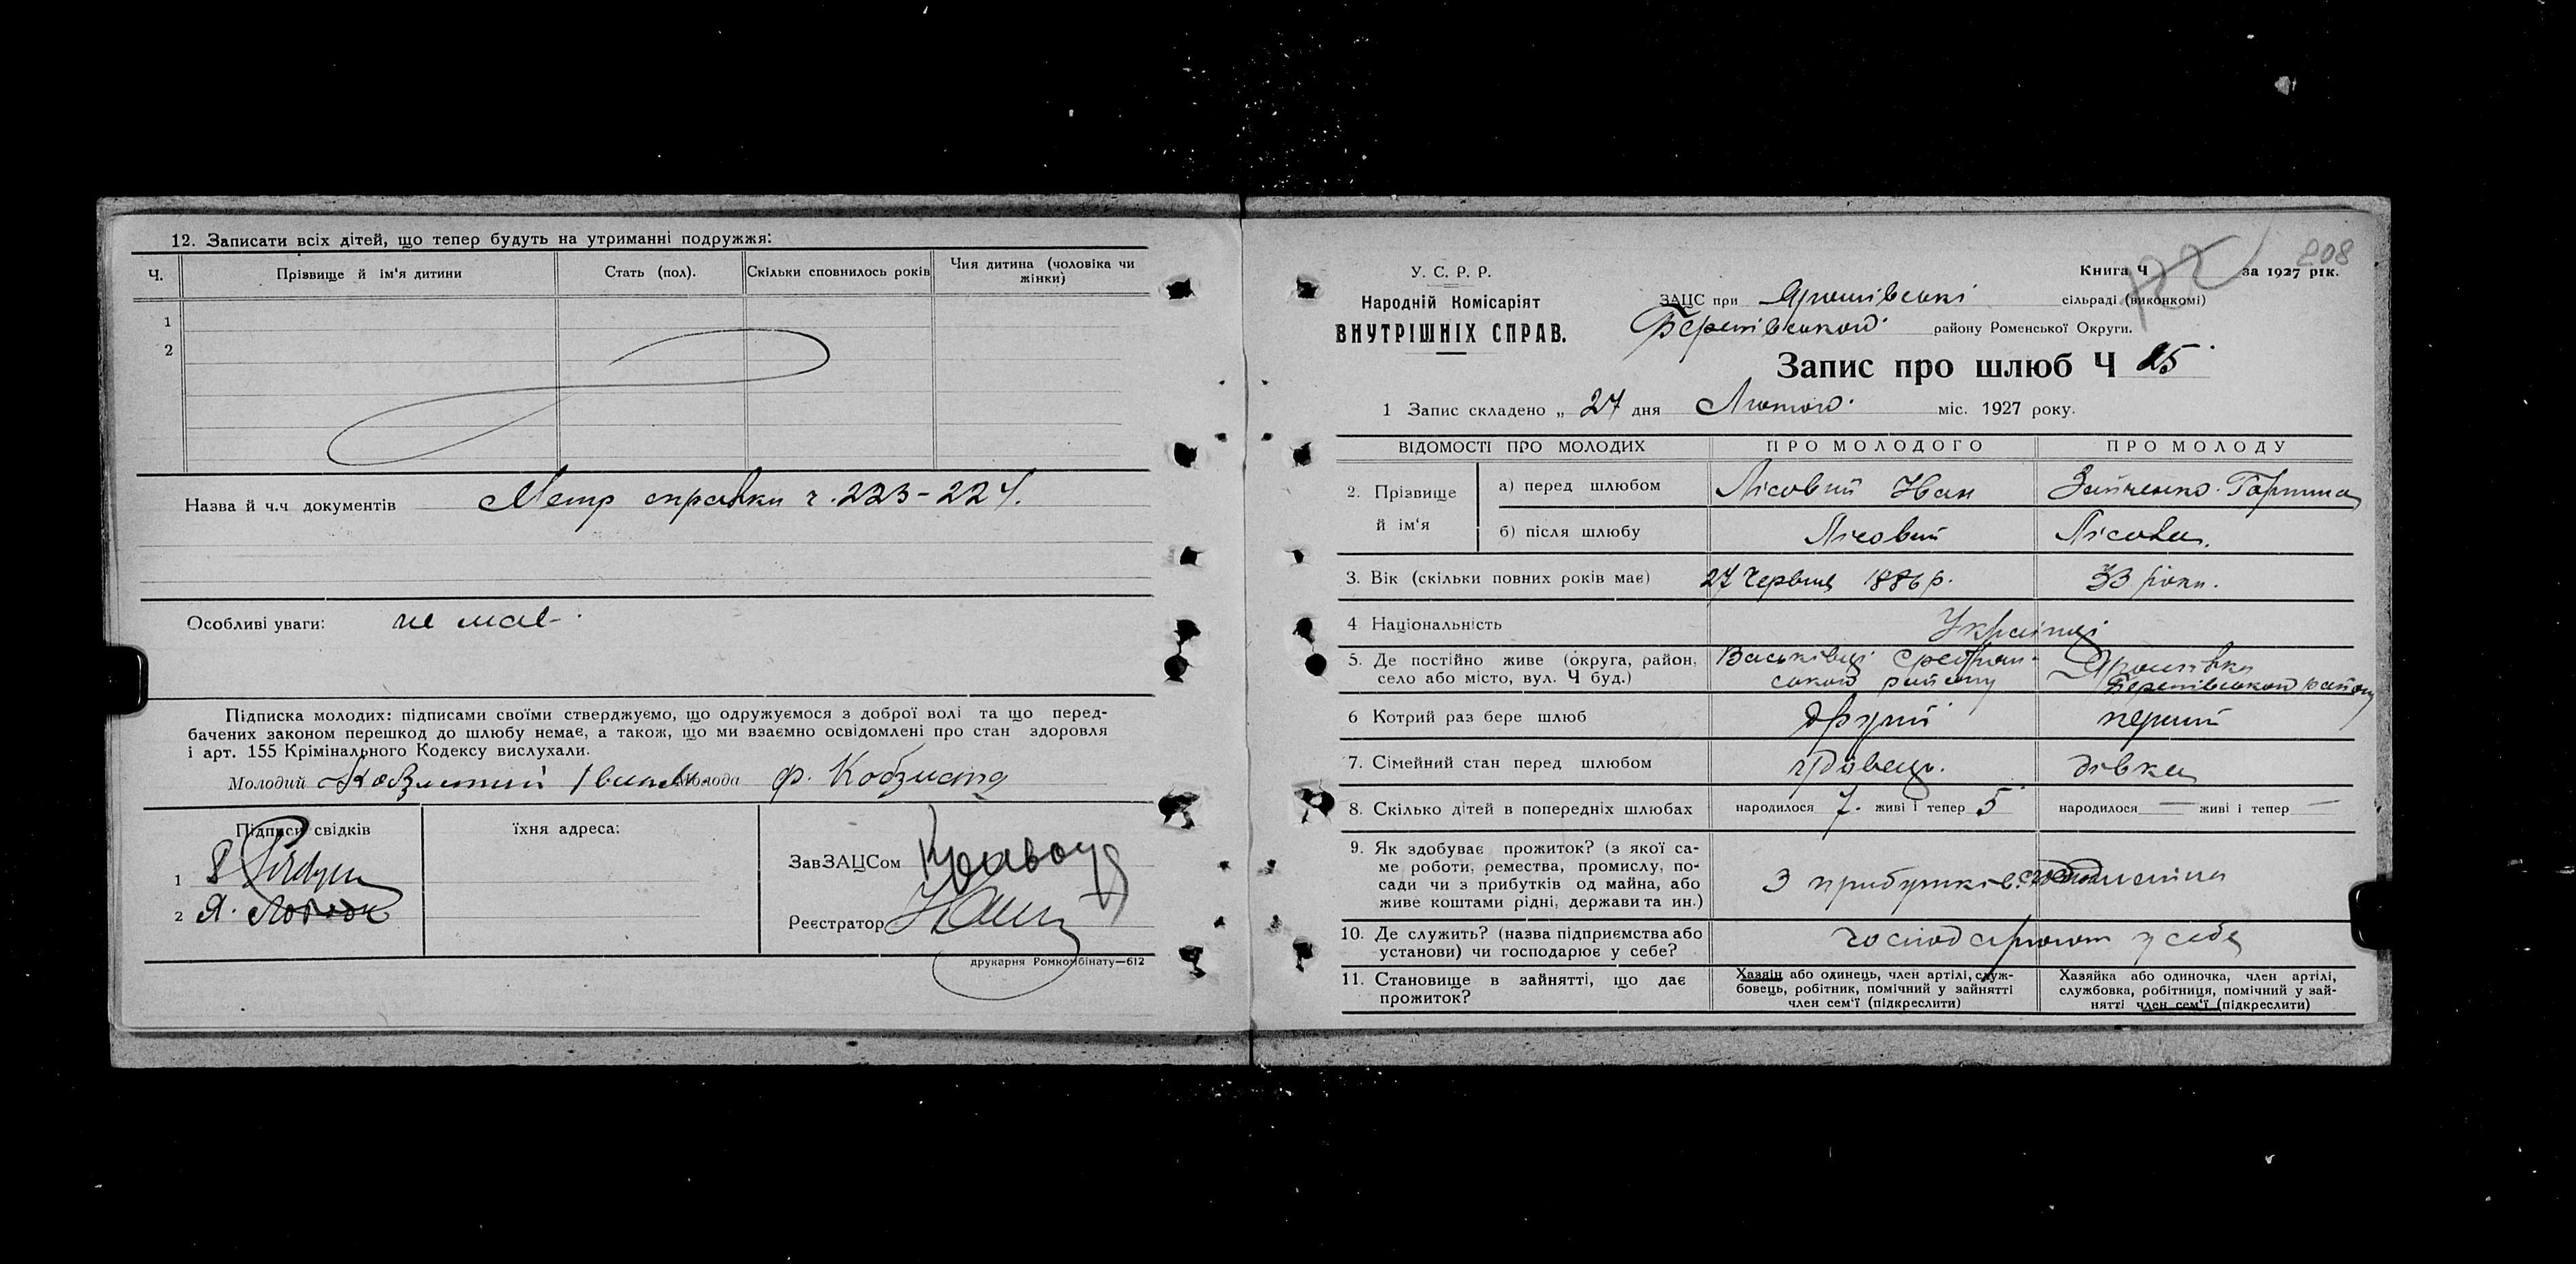 12. Записати всіх дітей, що тепер будуть на утриманні подружжя:
Ч. Прізвище й ім'я дитини Стать (пол). Скільки сповнилось років Чия дитина (чоловіка чи жінки)
1
2
Назва й ч.ч документів Метр справки ч. 223-224.
Особливі уваги: не має
Підписка молодих: підписами своїми стверджуємо, що одружуємося з доброї волі та що перед-
бачених законом перешкод до шлюбу немає, а також, що ми взаємно освідомлені про стан здоровля
і арт. 155 Крімінального Кодексу вислухали.
Молодий Молода Ф. Кобзиста
Підписи свідків їхня адреса:
ЗавЗАЦСом
1
2 Я.
Реєстратор
друкарня Ромкомбінату—612
208
У. С. Р. Р. Книга Ч за 1927 рік.
Народній Комісаріят ЗАЦС при Ярошівські сільраді (виконкомі)
ВНУТРІШНІХ СПРАВ. Берегівського району Роменської Округи.
Запис про шлюб Ч 25
1 Запис складено „ 27 дня Лютого міс. 1927 року.
ВІДОМОСТІ ПРО МОЛОДИХ ПРО МОЛОДОГО ПРО МОЛОДУ
2. Прізвище й ім'я а) перед шлюбом Лісовий Иван Зайченко Горпина
б) після шлюбу Лісовий Лісова.
3. Вік (скільки повних років має) 27 Червця 1886 р. 33 роки.
4 Національність Українці
5. Де постійно живе (округа, район, Васьківці Срібнян- Ярошівка
село або місто, вул. Ч буд.) ського району району
6 Котрий раз бере шлюб другий перший
7. Сімейний стан перед шлюбом вдівець. дівка
8. Скілько дітей в попередніх шлюбах народилося 7. живі і тепер 5 народилося — живі і тепер —
9. Як здобуває прожиток? (з якої са-
ме роботи, ремества, промислу, по-
сади чи з прибутків од майна, або З прибутків
живе коштами рідні, держави та ин.)
10. Де служить? (назва підприємства або господарюют у себе
установи) чи господарює у себе?
11. Становище в зайнятті, що дає прожиток?
Хазяїн або одинець, член артілі, служ-
бовець, робітник, помічний у зайнятті
член сем'ї (підкреслити)
Хазяйка або одиночка, член артілі,
службовка, робітниця, помічний у зай-
нятті член сем'ї (підкреслити)